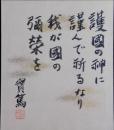 護國の神に
謹んで祈るなり
我が國の
彌榮を
實篤